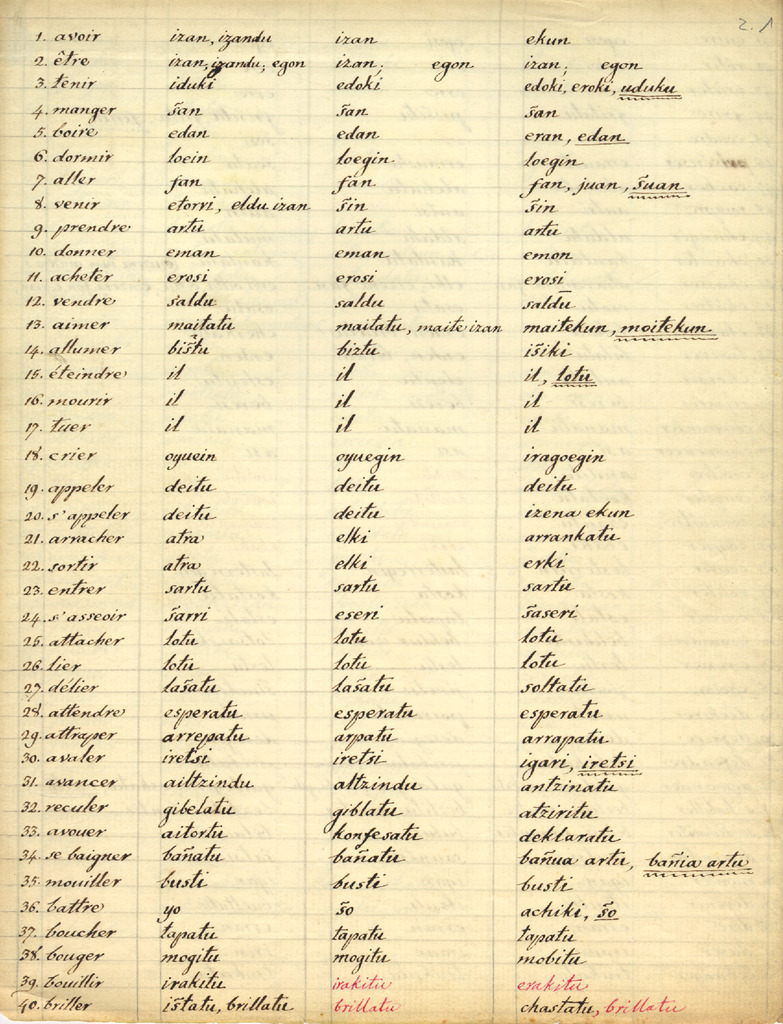 2. 1
1. avoir izan, izandu izan ekun
2. être izan, izandu; egon izan; egon izan; egon
3. tenir iduki edoki edoki, eroki, uduku
4. manger s̃an s̃an s̃an
5. boire edan edan eran, edan
6. dormir loein loegin loegin
7. aller fan fan fan, juan, s̃uan
8. venir etorri, eldu izan s̃in s̃in
9. prendre artu artu artu
10. donner eman eman emon
11. acheter erosi erosi erosi
12. vendre saldu saldu saldu
13. aimer maitatu maitatu, maite izan maitekun, moitekun
14. allumer bis̃tu biztu is̃iki
15. éteindre il il il, lotu
16. mourir il il il
17. tuer il il il
18. crier oyuein oyuegin iragoegin
19. appeler deitu deitu deitu
20. s'appeler deitu deitu izena ekun
21. arracher atra elki arrankatu
22. sortir atra elki erki
23. entrer sartu sartu sartu
24. s'asseoir s̃arri eseri s̃aseri
25. attacher lotu lotu lotu
26. lier lotu lotu lotu
27. délier las̃atu las̃atu soltatu
28. attendre esperatu esperatu esperatu
29. attraper arrepatu arpatu arrapatu
30. avaler iretsi iretsi igari, iretsi
31. avancer ailtzindu altzindu antzinatu
32. reculer gibelatu giblatu atziritu
33. avouer aitortu konfesatu deklaratu
34. se baigner bañatu bañatu bañua artu, bañia artu
35. mouiller busti busti busti
36. battre yo s̃o achiki, s̃o
37. boucher tapatu tapatu tapatu
38. bouger mogitu mogitu mobitu
39. bouillir irakitu irakitu erakitu
40. briller is̃tatu, brillatu brillatu chastatu, brillatu